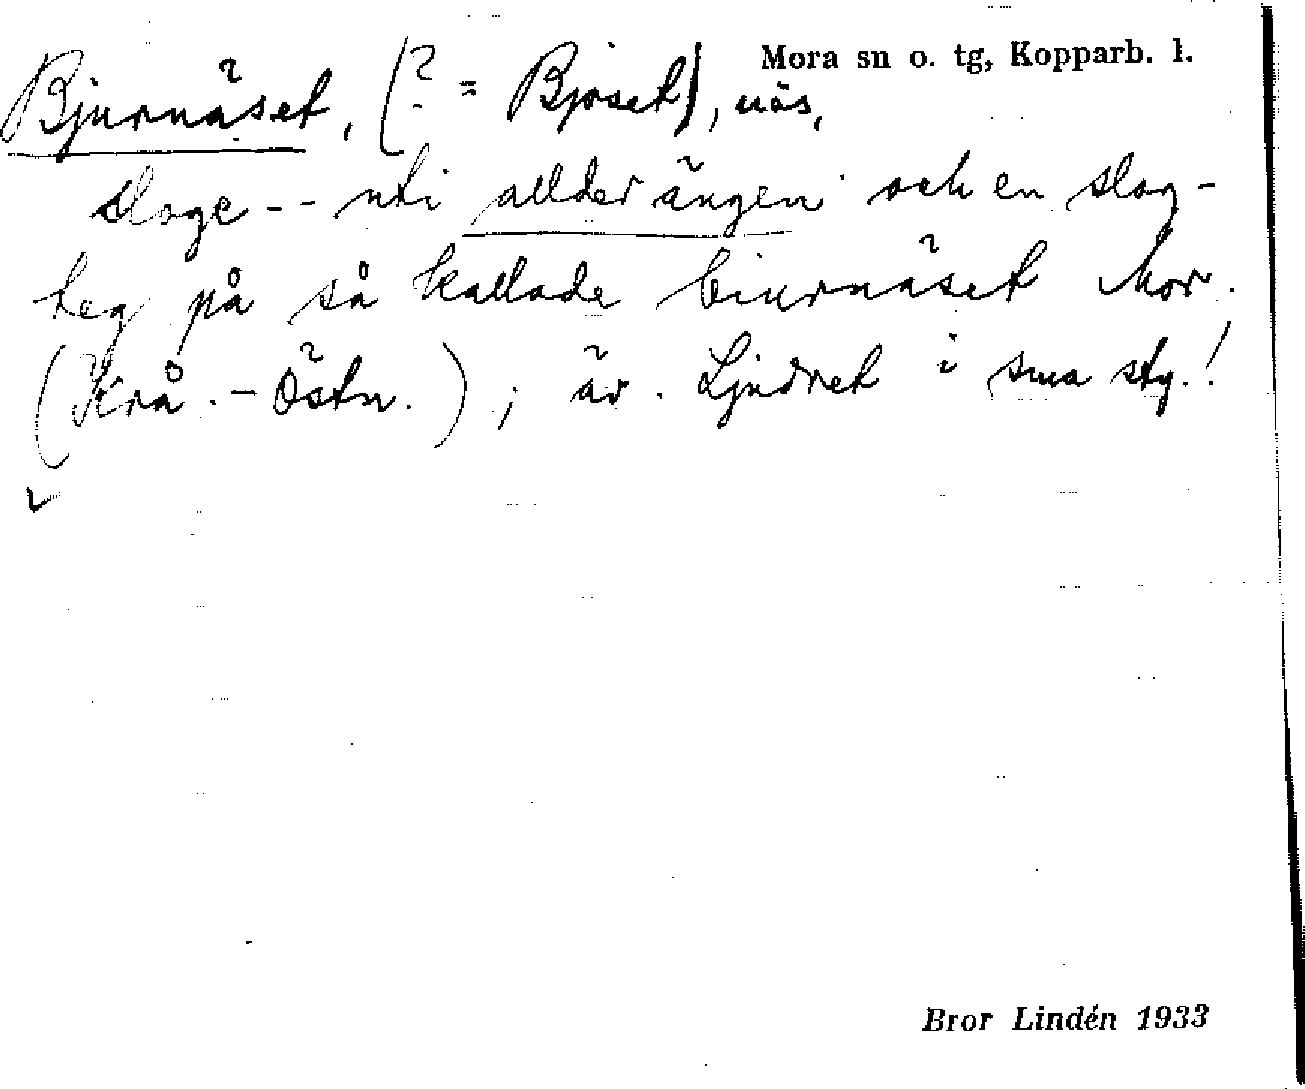 Mora sn o. tg, Kopparb. l.
Bjurnäset, [? = Bjoset], näs,
sloge -- uti allder ängen och en slog-
teg på så kallade biurnäset Mor.
(Krå.-Östn.); äv. Ljudret i sma sty.!
Bror Lindén 1933